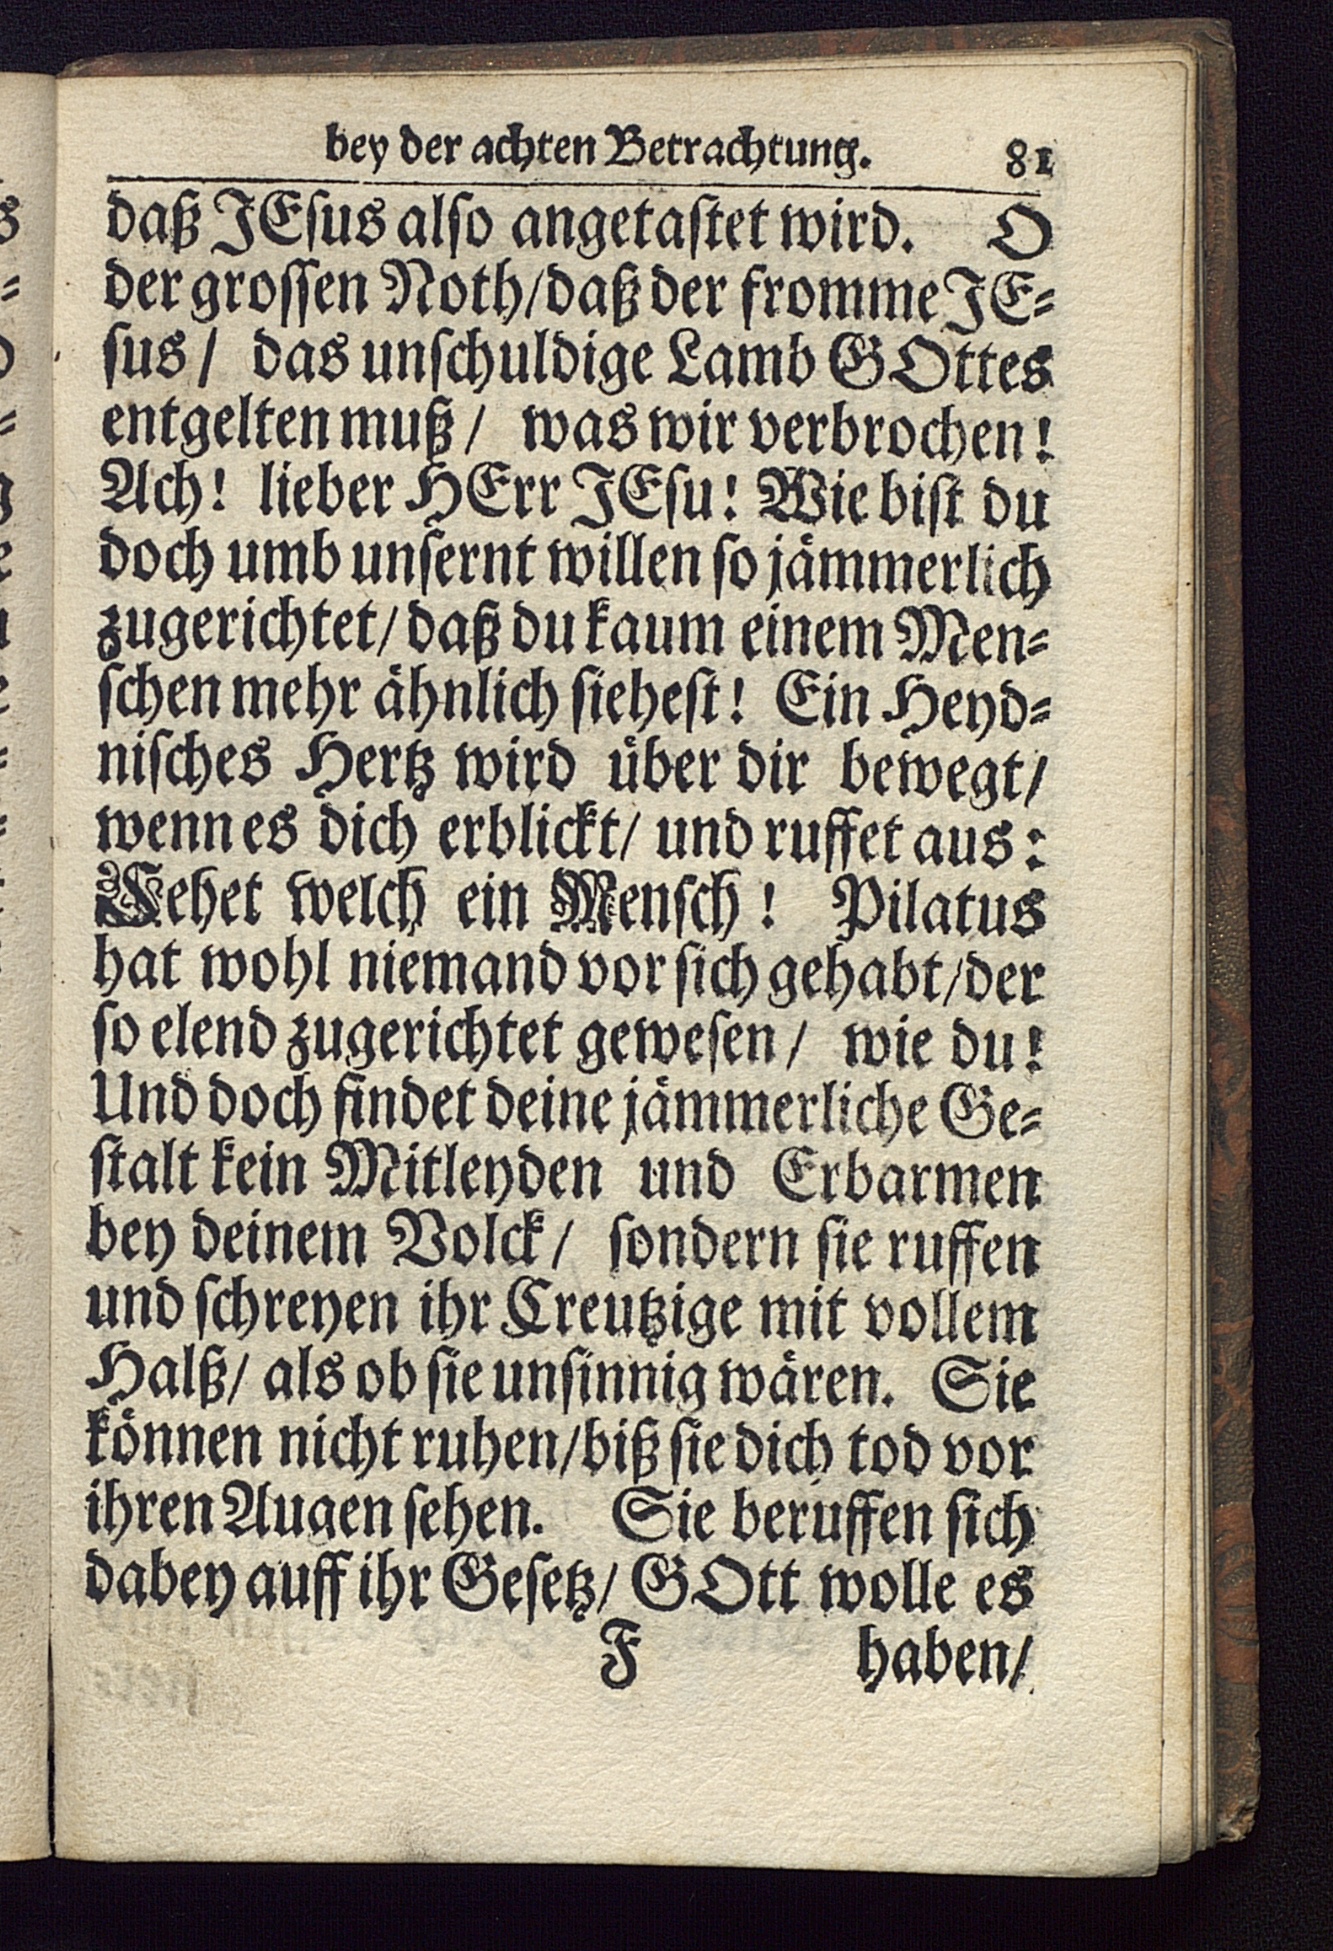 bey der achten Betrachtung. 81
daß JEsus also angetastet wird. O
der grossen Noth/daß der fromme JE-
sus/ das unschuldige Lamb GOttes
entgelten muß/ was wir verbrochen!
Ach! lieber HErr JEsu! Wie bist du
doch umb unsernt willen so jämmerlich
zugerichtet/daß du kaum einem Men-
schen mehr ähnlich siehest! Ein Heyd-
nisches Hertz wird über dir bewegt/
wenn es dich erblickt/ und ruffet aus:
Sehet welch ein Mensch! Pilatus
hat wohl niemand vor sich gehabt/der
so elend zugerichtet gewesen/ wie du!
Und doch findet deine jämmerliche Ge-
stalt kein Mitleyden und Erbarmen
bey deinem Volck/ sondern sie ruffen
und schreyen ihr Creutzige mit vollem
Halß/ als ob sie unsinnig wären. Sie
können nicht ruhen/biß sie dich tod vor
ihren Augen sehen. Sie beruffen sich
dabey auff ihr Gesetz/ GOtt wolle es
F haben/